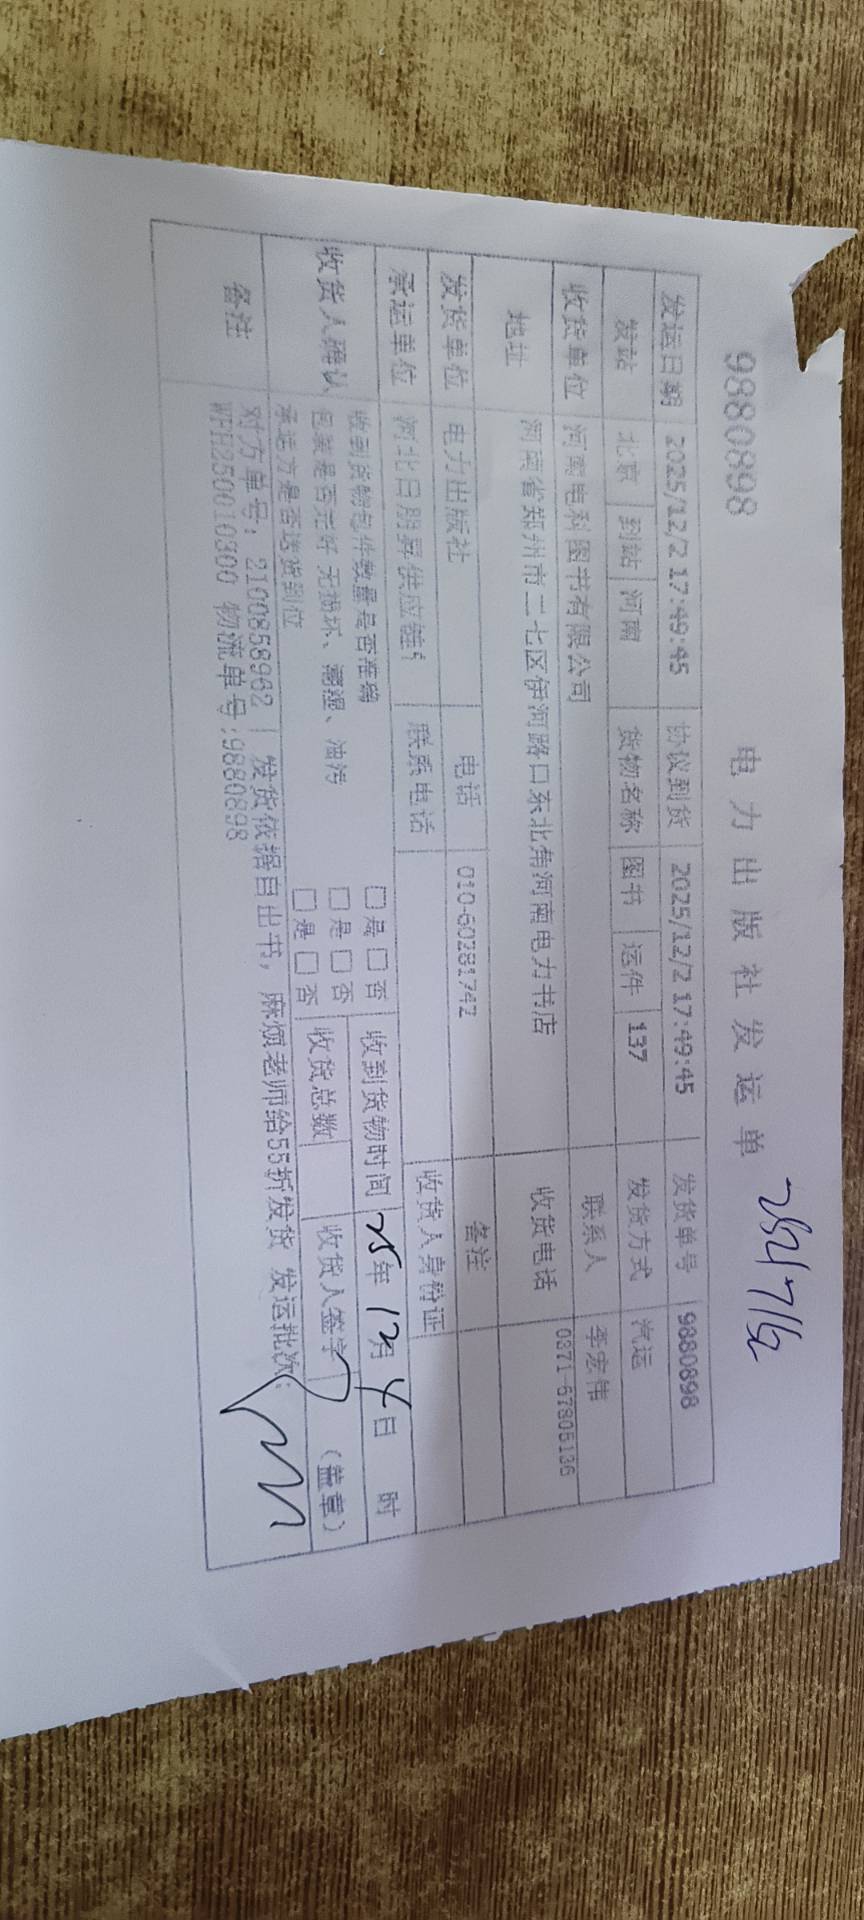 9880898
电力出版社发运单
发运日期 2025/12/2 17:49:45 协议到货 2025/12/2 17:49:45 发货单号 9880898
发站 北京 到站 河南 货物名称 图书 运件 137 发货方式 汽运
收货单位 河南电科图书有限公司 联系人 李宏伟
地址 河南省郑州市二七区伊河路口东北角河南电力书店 收货电话 0371-67905136
发货单位 电力出版社 电话 010-60281742 备注
承运单位 河北日朋昇供应链 联系电话 收货人身份证
收货人确认 收到货物包件数量是否准确 □是□否 收到货物时间 25年12月4日 时
包装是否完好 无损坏、潮湿、油污 □是□否 收货总数 收货人签字 (盖章)
承运方是否送货到位 □是□否
备注 对方单号：2100858962 | 发货依据自出书，麻烦老师给55折发货 发运批次：
WFH250010300 物流单号:9880898